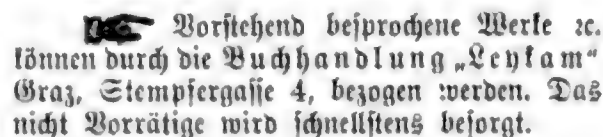 Vorstehend besprochene Werke ꝛc.
können durch die Buchhandlung „Leykam“
Graz, Stempfergasse 4, bezogen werden. Das
nicht Vorrätige wird schnellstens besorgt.